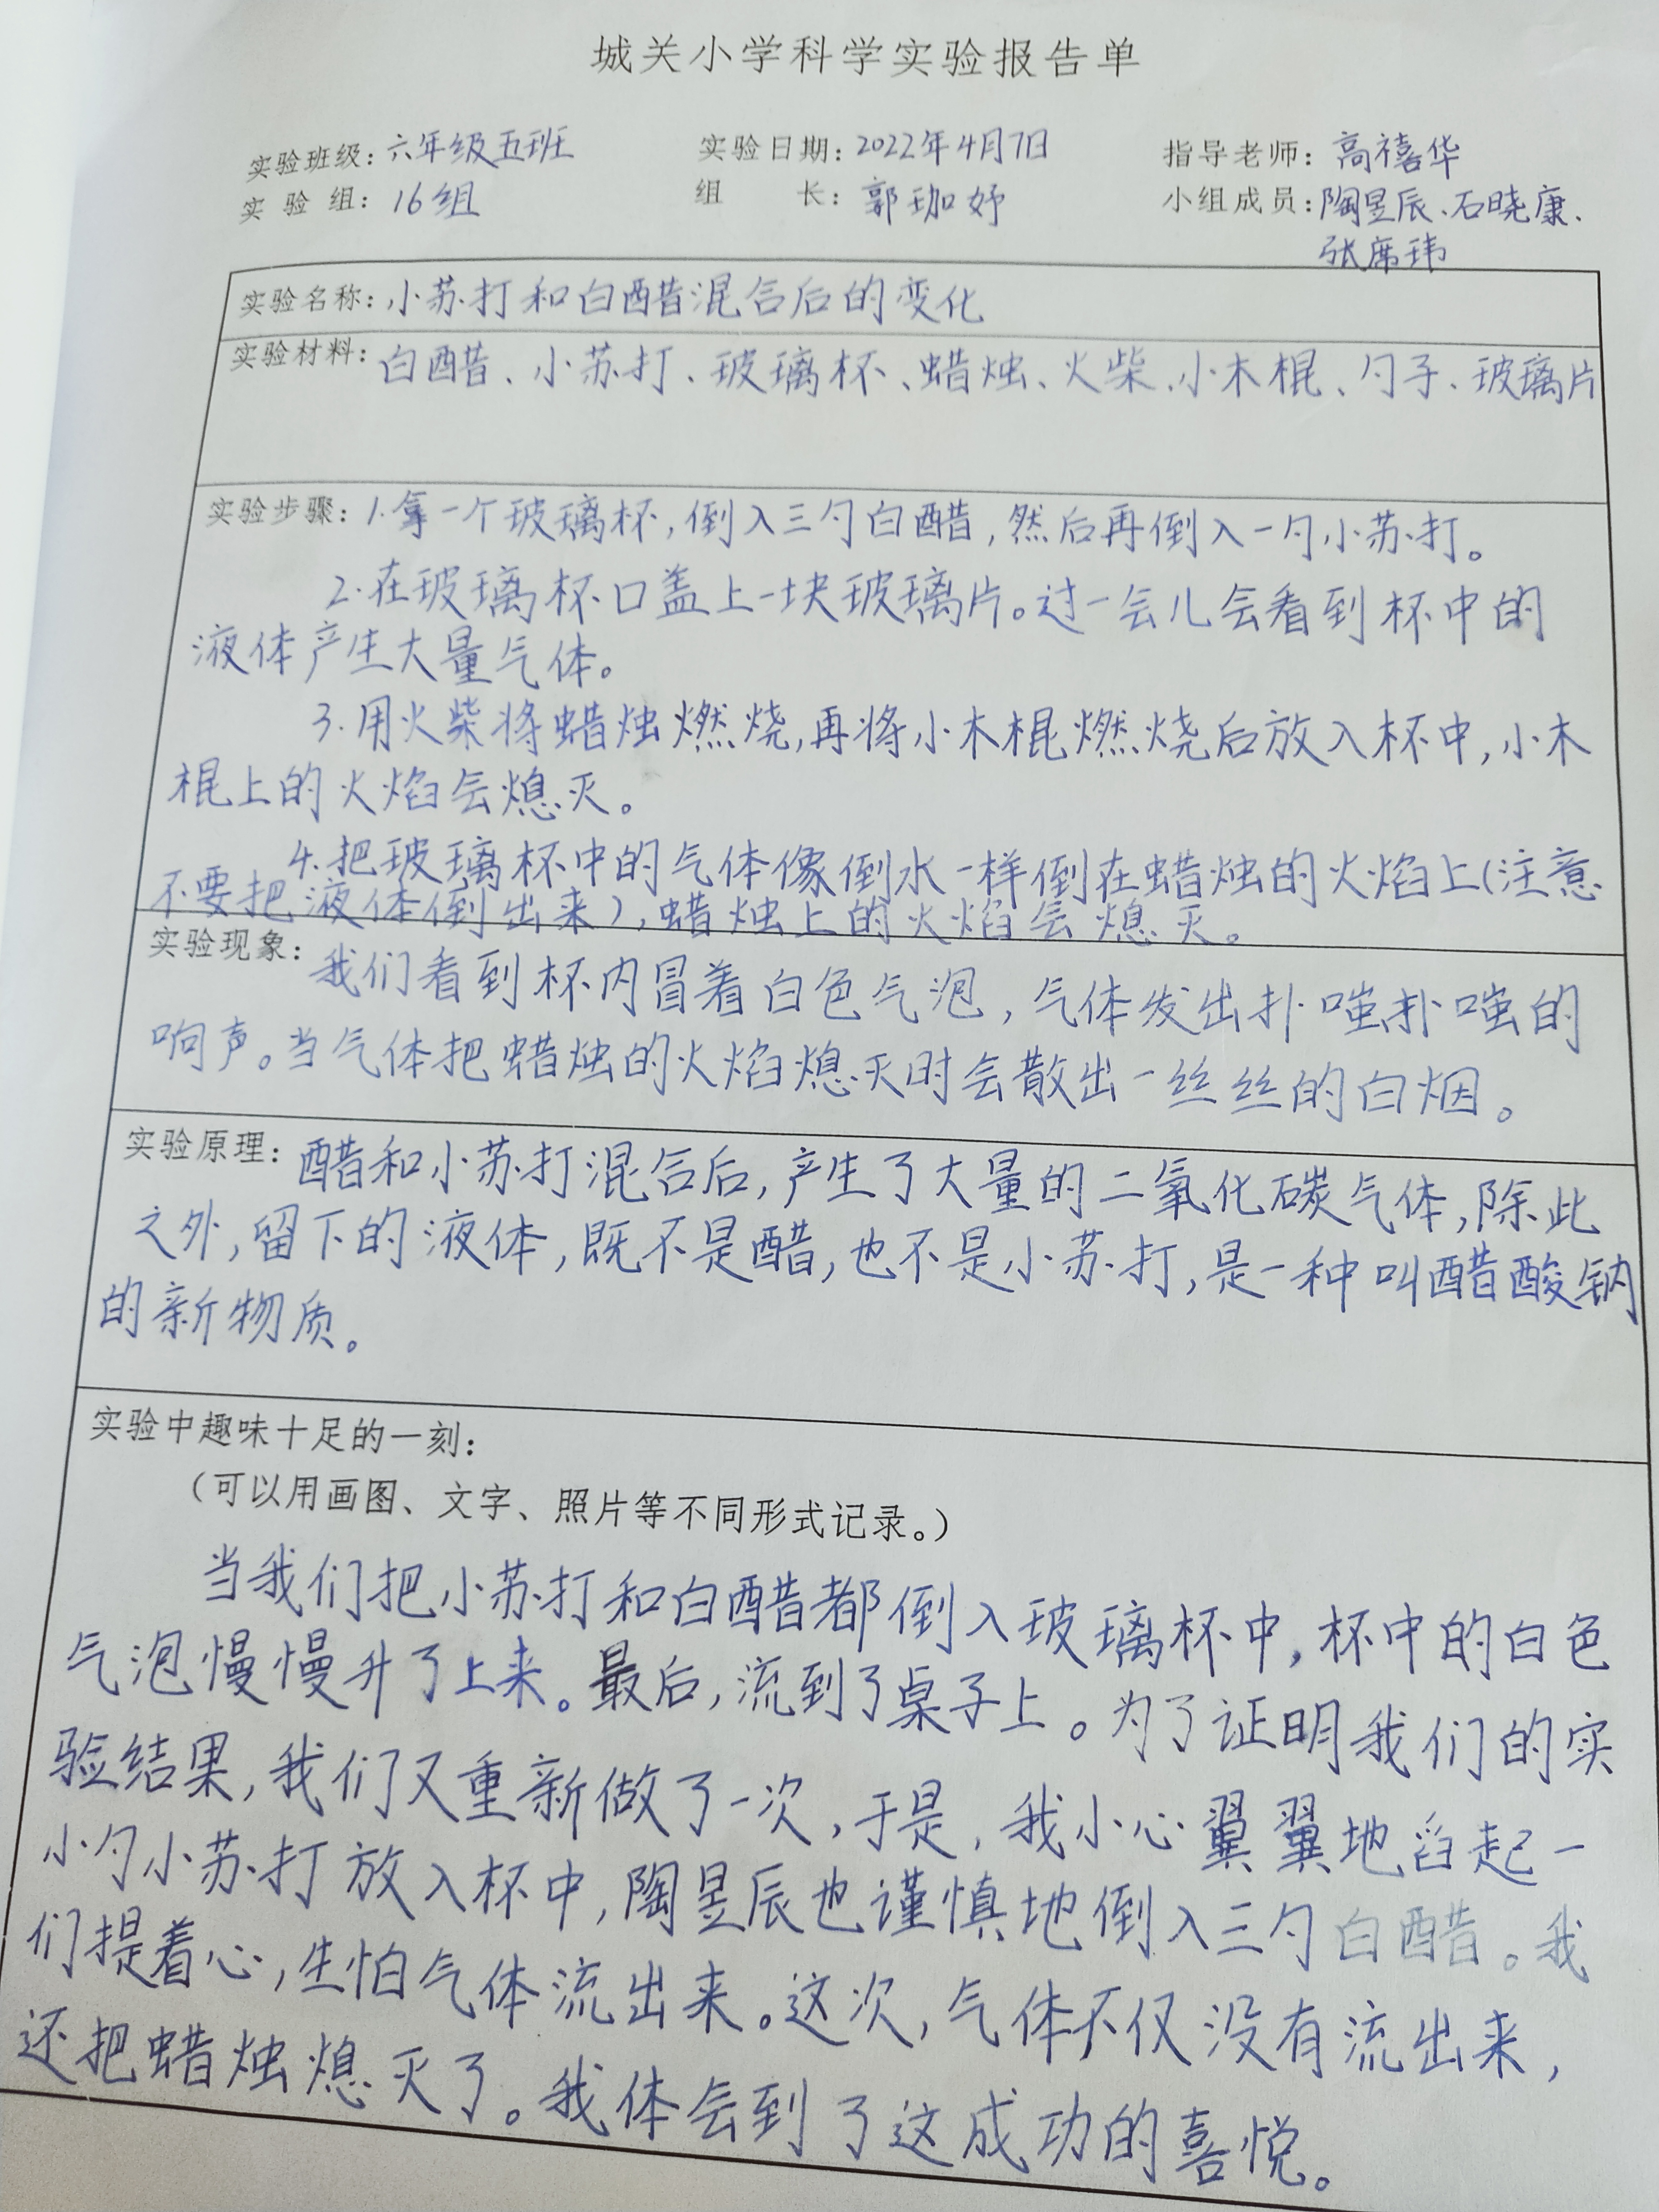 城关小学科学实验报告单
实验班级：六年级五班 实验日期：2022年4月7日 指导老师：高禧华
实验组：16组 组长：郭珈妤 小组成员：陶昱辰、石晓康、
张席玮
实验名称：小苏打和白醋混合后的变化
实验材料：白醋、小苏打、玻璃杯、蜡烛、火柴、小木棍、勺子、玻璃片
实验步骤：1.拿一个玻璃杯，倒入三勺白醋，然后再倒入一勺小苏打。
2.在玻璃杯口盖上一块玻璃片。过一会儿会看到杯中的
液体产生大量气体。
3.用火柴将蜡烛燃烧，再将小木棍燃烧后放入杯中，小木
棍上的火焰会熄灭。
4.把玻璃杯中的气体像倒水一样倒在蜡烛的火焰上（注意
不要把液体倒出来），蜡烛上的火焰会熄灭。
实验现象：我们看到杯内冒着白色气泡，气体发出扑嗤扑嗤的
响声。当气体把蜡烛的火焰熄灭时会散出一丝丝的白烟。
实验原理：醋和小苏打混合后，产生了大量的二氧化碳气体，除此
之外，留下的液体，既不是醋，也不是小苏打，是一种叫醋酸钠
的新物质。
实验中趣味十足的一刻：
（可以用画图、文字、照片等不同形式记录。）
当我们把小苏打和白醋都倒入玻璃杯中，杯中的白色
气泡慢慢升了上来。最后，流到了桌子上。为了证明我们的实
验结果，我们又重新做了一次，于是，我小心翼翼地舀起一
小勺小苏打放入杯中，陶昱辰也谨慎地倒入三勺白醋。我
们提着心，生怕气体流出来。这次，气体不仅没有流出来，
还把蜡烛熄灭了。我体会到了这成功的喜悦。